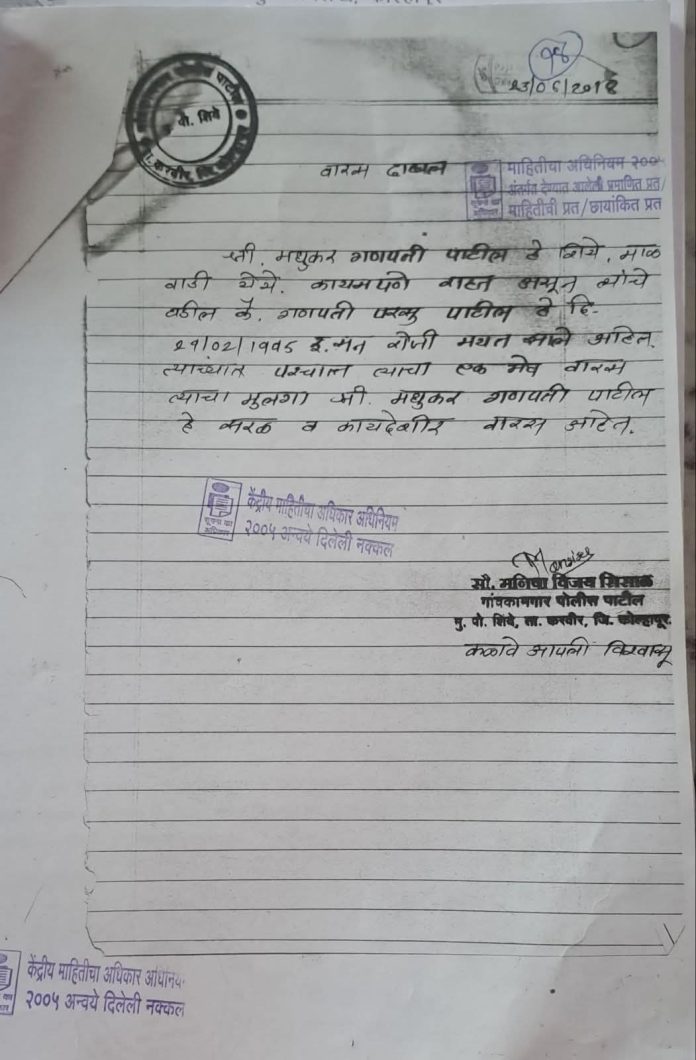 १४
23/06/2018
पो. शिये
वारस दाखला
माहितीचा अधिनियम २००५
अंतर्गत देण्यात आलेली प्रमाणित प्रत/
माहितीची प्रत/छायांकित प्रत
श्री. मधुकर गणपती पाटील हे शिये, माळ
वाडी येथे. कायमपणे राहत असून यांचे
वडील कै. गणपती परसु पाटील हे दि.
21/02/1995 इ. सन रोजी मयत झाले आहेत.
त्यांच्यात पश्चात त्याचा एक मेव वारस
त्याचा मुलगा श्री. मधुकर गणपती पाटील
हे सरळ व कायदेशीर वारस आहेत.
केंद्रीय माहितीचा अधिकार अधिनियम
२००५ अन्वये दिलेली नक्कल
सौ. मनिषा विजय सिसाळ
गांवकामगार पोलीस पाटील
मु. पो. शिये, ता. करवीर, जि. कोल्हापूर.
कळावे आपली विश्वासू
केंद्रीय माहितीचा अधिकार अधिनियम
२००५ अन्वये दिलेली नक्कल